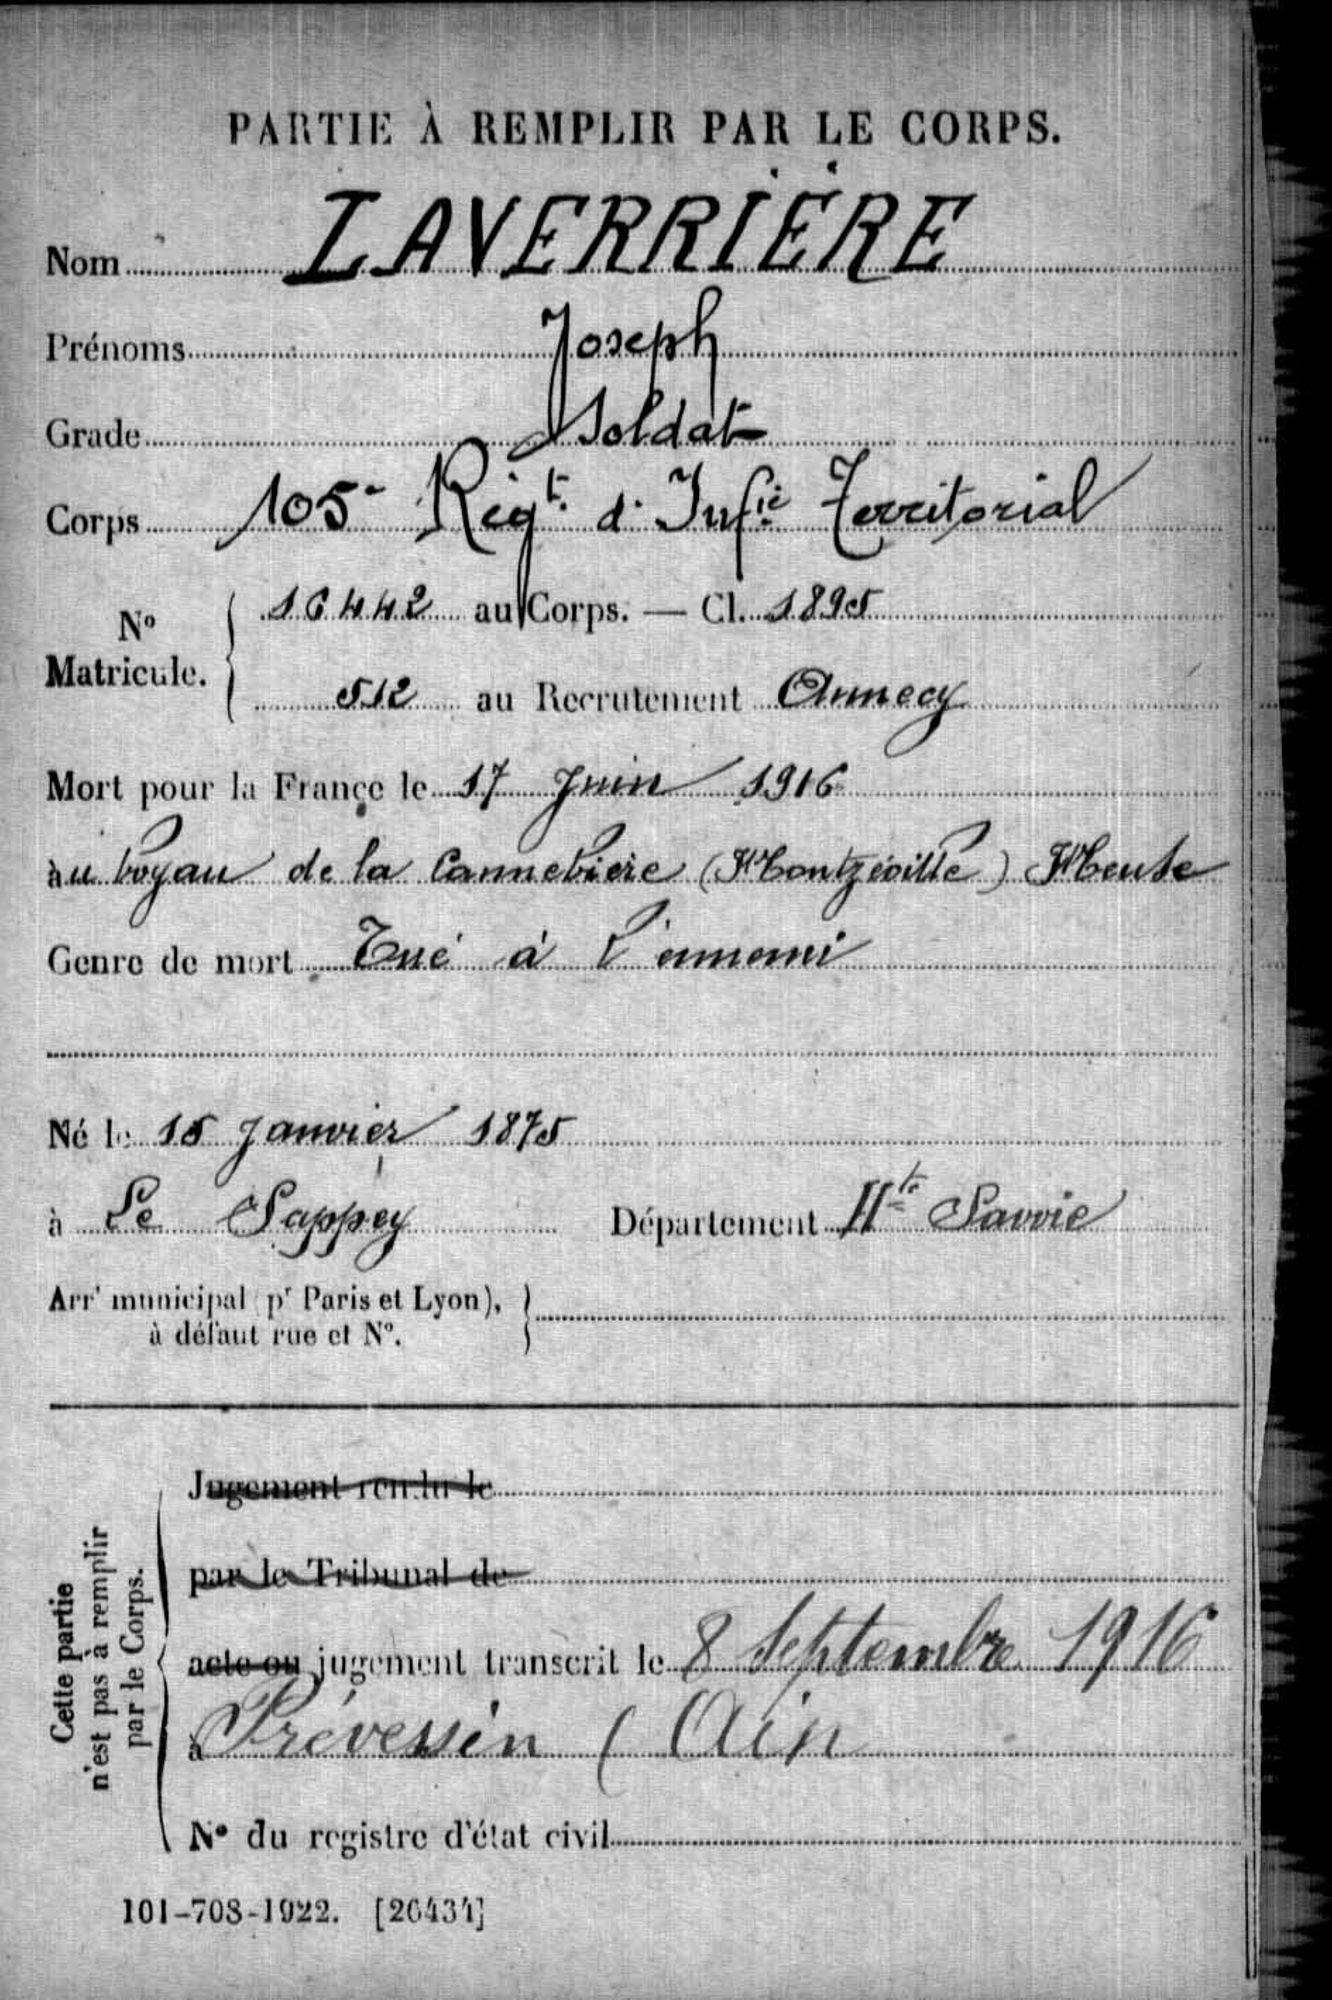 PARTIE À REMPLIR PAR LE CORPS.
Nom LAVERRIÈRE
Prénoms Joseph
Grade Soldat
Corps 105e Régt. d'Infie Territorial
No Matricule. 16442 au Corps. — Cl. 1895
512 au Recrutement Annecy
Mort pour la France le 17 Juin 1916
au boyau de la Cannebière (Montzéville) Meuse
Genre de mort Tué à l'ennemi
Né le 15 Janvier 1875
à Le Sappey Département Hte Savoie
Arrt municipal (pr Paris et Lyon),
à défaut rue et No.
Cette partie
n'est pas à remplir
par le Corps.
Jugement rendu le
par le Tribunal de
acte ou jugement transcrit le 8 Septembre 1916
à Prévessin (Ain
No du registre d'état civil
101-708-1922. [26434]